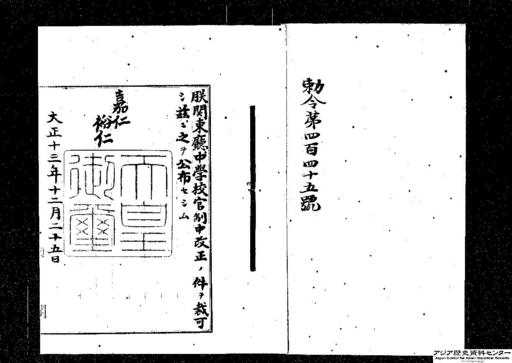 勅令第四百四十五號
朕關東廳中學校官制中改正ノ件ヲ裁可
シ茲ニ之ヲ公布セシム
嘉仁
裕仁
天皇
御璽
大正十三年十二月二十五日
アジア歴史資料センター
Japan Center for Asian Historical Records